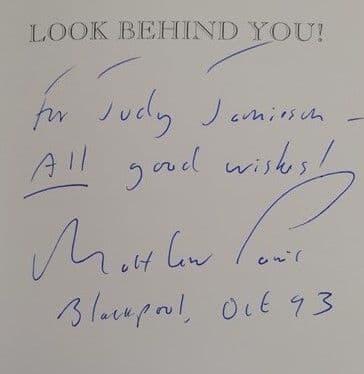 LOOK BEHIND YOU!
For Judy Jamieson -
All good wishes!
Matthew Parris
Blackpool, Oct 93